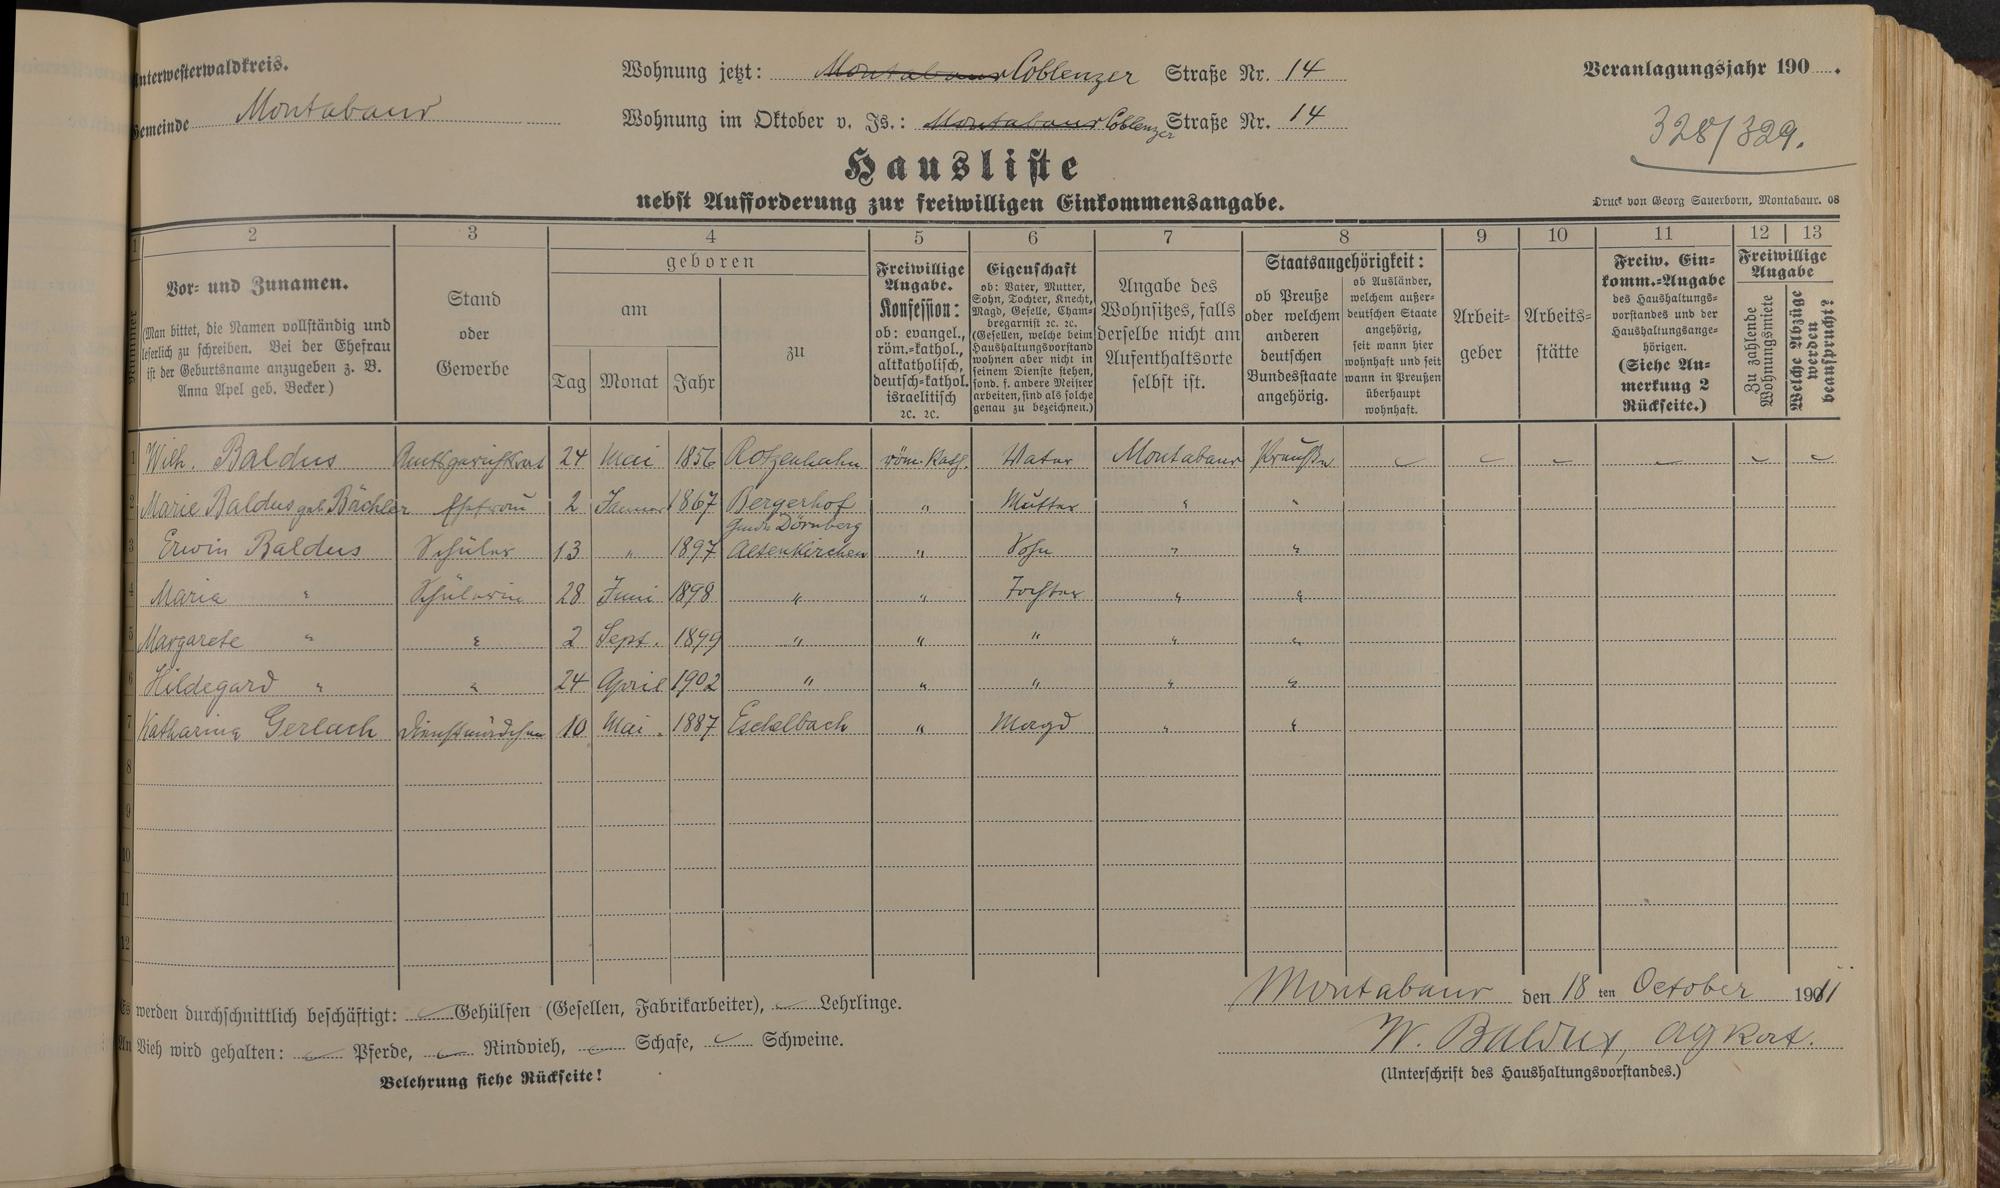 Unterwesterwaldkreis.
Gemeinde Montabaur
Wohnung jetzt: Montabaur Coblenzer Straße Nr. 14
Wohnung im Oktober v. Js.: Montabaur Coblenzer Straße Nr. 14
Veranlagungsjahr 190 .
328/329.
Hausliste
nebst Aufforderung zur freiwilligen Einkommensangabe.
Druck von Georg Sauerborn, Montabaur. 08
1 2 3 4 5 6 7 8 9 10 11 12 13
Nummer
Vor- und Zunamen.
(Man bittet, die Namen vollständig und
leserlich zu schreiben. Bei der Ehefrau
ist der Geburtsname anzugeben z. B.
Anna Apel geb. Becker)
Stand
oder
Gewerbe
geboren
am
Tag Monat Jahr
zu
Freiwillige
Angabe.
Konfession:
ob: evangel.,
röm.-kathol.,
altkatholisch,
deutsch-kathol.
israelitisch
ꝛc. ꝛc.
Eigenschaft
ob: Vater, Mutter,
Sohn, Tochter, Knecht,
Magd, Geselle, Cham-
bregarnist ꝛc. ꝛc.
(Gesellen, welche beim
Haushaltungsvorstand
wohnen aber nicht in
seinem Dienste stehen,
sond. f. andere Meister
arbeiten, sind als solche
genau zu bezeichnen.)
Angabe des
Wohnsitzes, falls
derselbe nicht am
Aufenthaltsorte
selbst ist.
Staatsangehörigkeit:
ob Preuße
oder welchem
anderen
deutschen
Bundesstaate
angehörig.
ob Ausländer,
welchem außer-
deutschen Staate
angehörig,
seit wann hier
wohnhaft und seit
wann in Preußen
überhaupt
wohnhaft.
Arbeit-
geber
Arbeits-
stätte
Freiw. Ein-
komm.-Angabe
des Haushaltungs-
vorstandes und der
Haushaltungsange-
hörigen.
(Siehe An-
merkung 2
Rückseite.)
Freiwillige
Angabe
Zu zahlende
Wohnungsmiete
Welche Abzüge
werden
beansprucht?
1 Wilh. Baldus Amtsgerichtsrat 24 Mai 1856 Rotzenhahn röm. kath. Vater Montabaur Preuße
2 Marie Baldus geb. Bächler Ehefrau 2 Januar 1867 Bergerhof " Mutter " "
Gmde Dörnberg
3 Erwin Baldus Schüler 13 " 1897 Altenkirchen " Sohn " "
4 Maria " Schülerin 28 Juni 1898 " " Tochter " "
5 Margarete " " 2 Sept. 1899 " " " " "
6 Hildegard " " 24 April 1902 " " " " "
7 Katharina Gerlach Dienstmädchen 10 Mai 1887 Eschelbach " Magd " "
8
9
10
11
12
Es werden durchschnittlich beschäftigt: Gehülfen (Gesellen, Fabrikarbeiter), Lehrlinge.
An Vieh wird gehalten: Pferde, Rindvieh, Schafe, Schweine.
Belehrung siehe Rückseite!
Montabaur den 18 ten October 1911
W. Baldus, AGRat.
(Unterschrift des Haushaltungsvorstandes.)